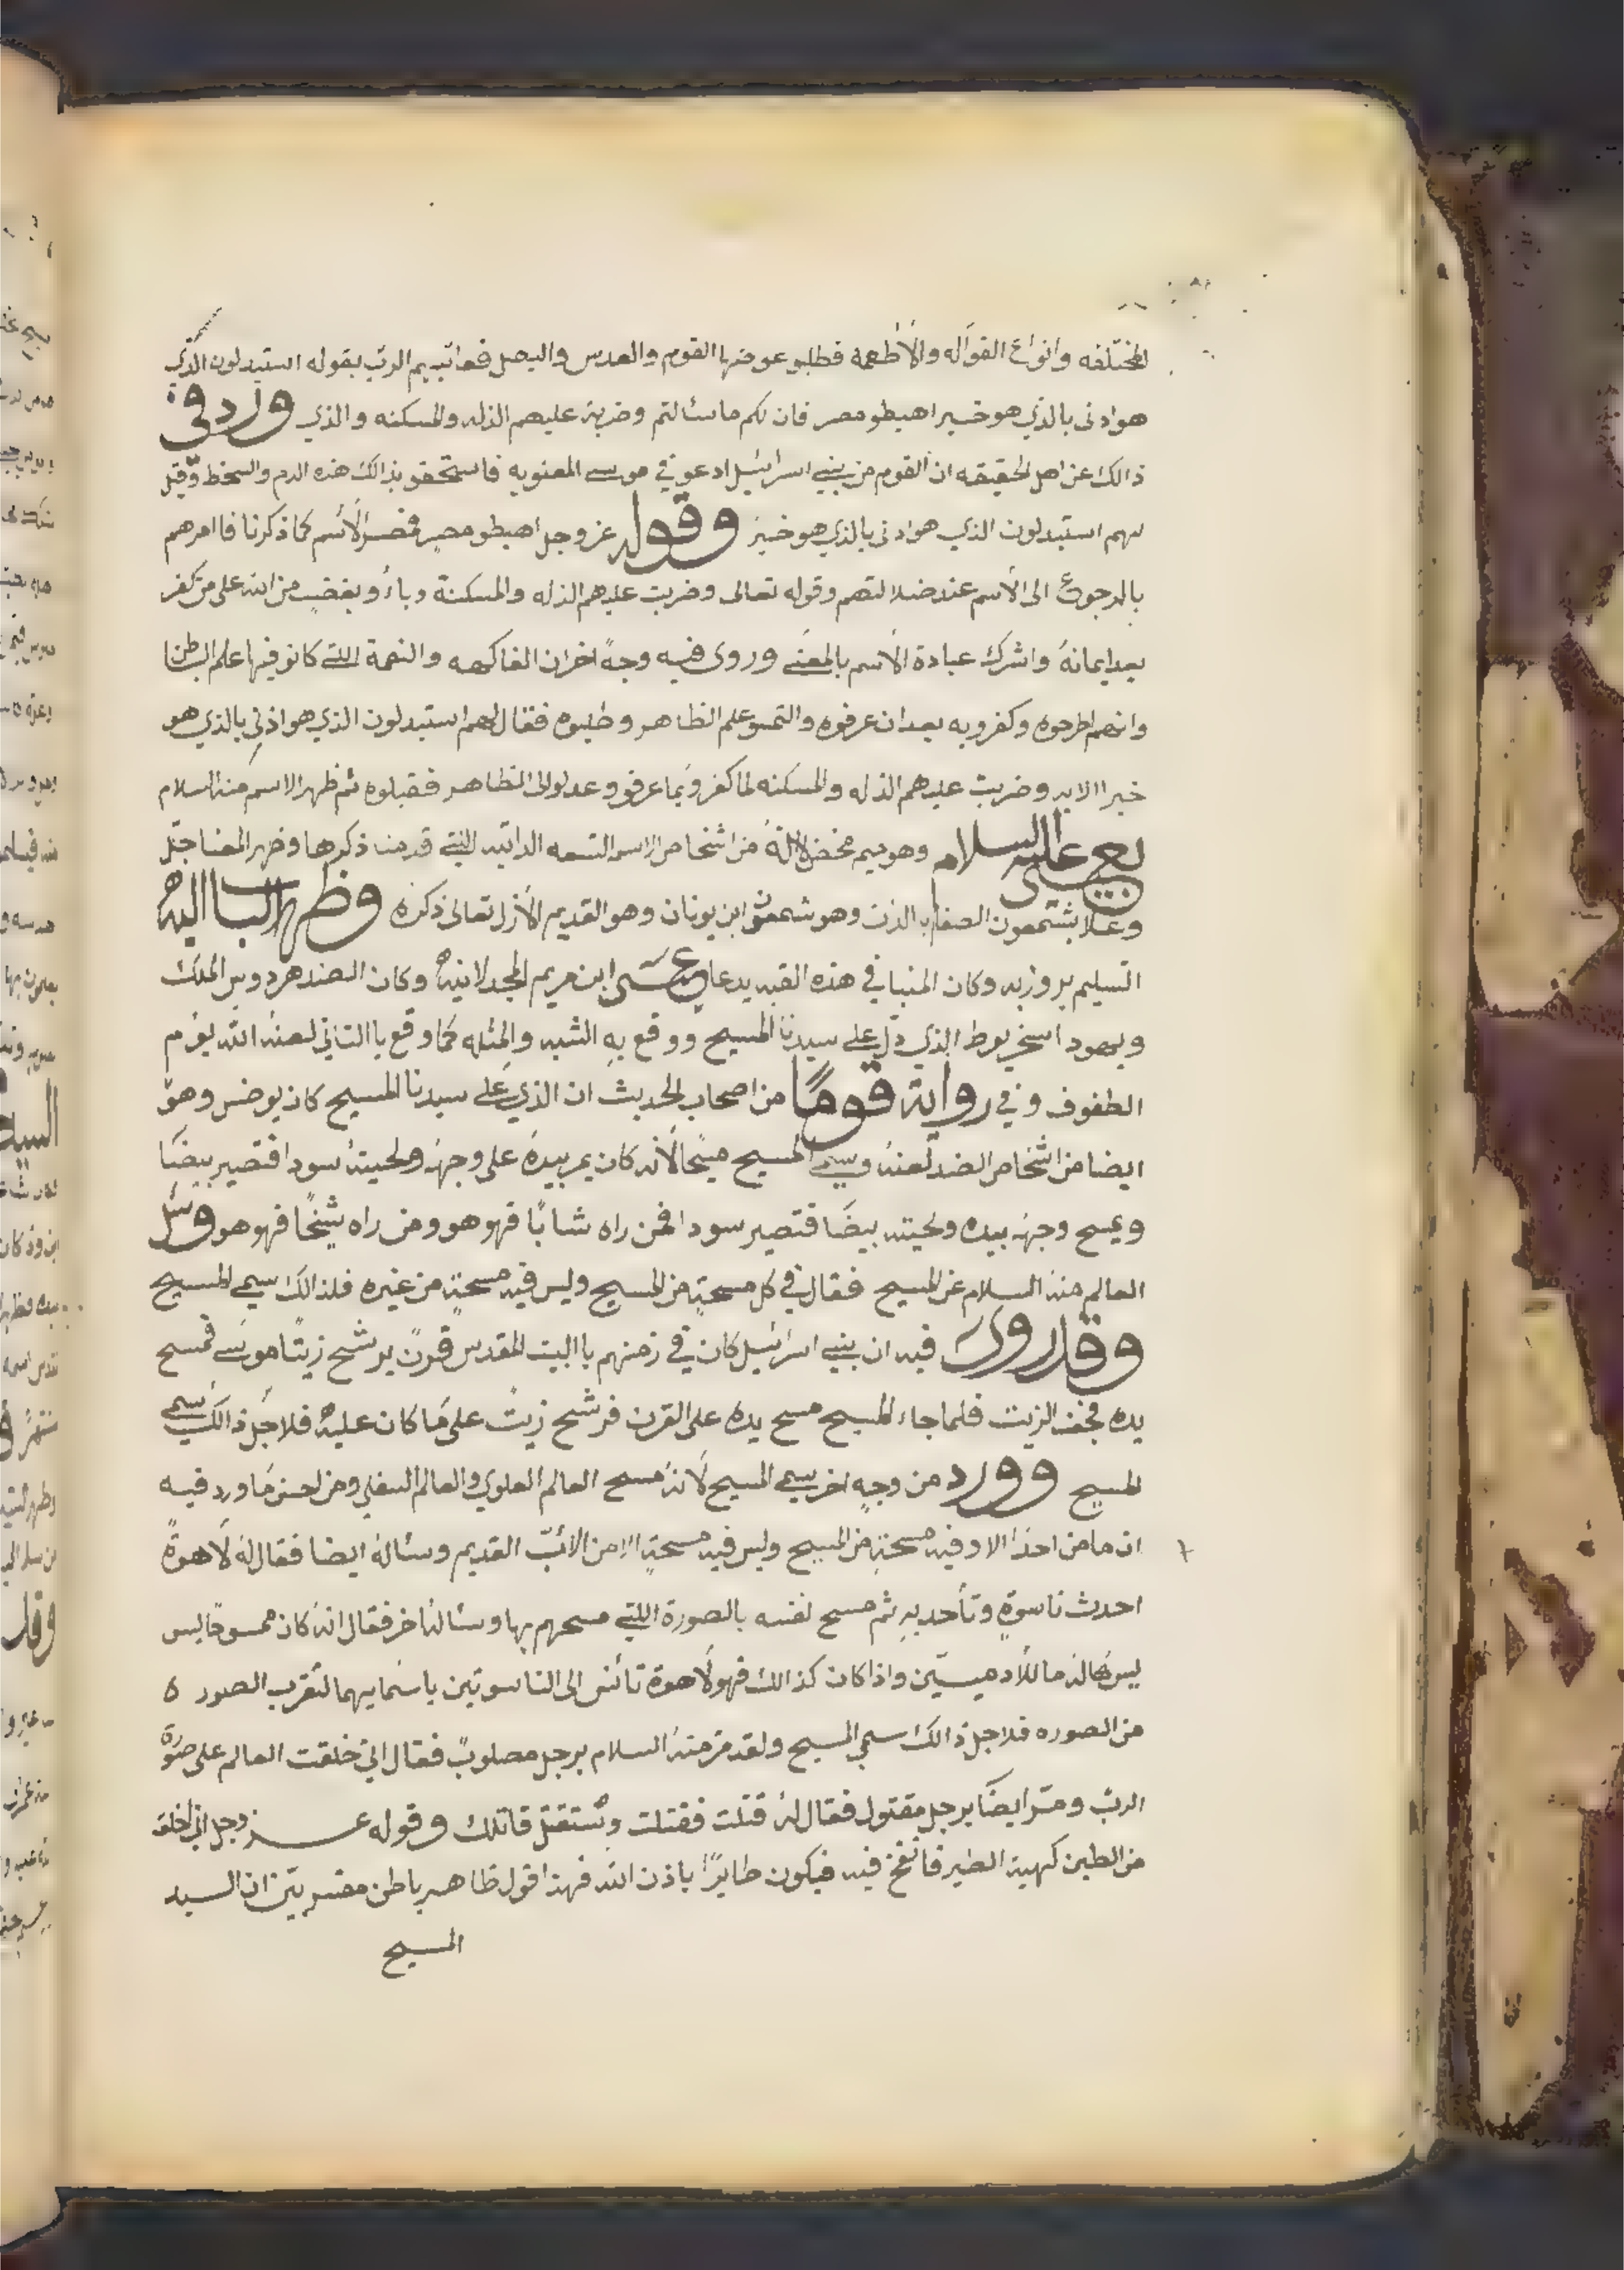 المختلفه وانواع الفواكه والاطعمة فطلبو عوضها الفوم والعدس والبصل فعاتبهم الرب بقوله استبدلون الذي
هو ادنى بالذي هو خير اهبطو مصر فان لكم ما سئالتم وضربة عليهم الذله والمسكنه والذي ورد في
ذالك عن اهل الحقيقه ان القوم من بني اسرائيل ادعو في موسى المعنويه فاستحقو بذالك هذه الذم والسخط وقيل
لهم استبدلون الذي هو ادنى بالذي هو خير وقوله عز وجل اهبطو مصر فمصر الاسم كما ذكرنا فاامرهم
بالرجوع الى الاسم عند ضلالتهم وقوله تعالى وضربت عليهم الذله والمسكنة وباؤ وبغضب من الله على من كفر
بعد ايمانه واشرك عبادة الاسم بالمعنى وروى فيه وجه اخر ان الفاكهه والنعمة اللتي كانو فيها علم الباطن
وانهم اطرحوه وكفرو به بعد ان عرفوه والتمسو علم الظاهر وطلبوه فقال لهم استبدلون الذي هو ادنى بالذي هو
خير الايه وضربت عليهم الذله والمسكنه لما كفرو بما عرفو وعدلو الى الظاهر فقبلوه ثم ظهر الاسم منه السلام
بعيسى عليه السلام وهو ميم محض لانه من اشخاص الاسم التسعه الذاتيه اللتي قدمنا ذكرها وظهر المعنا جل
وعلا بشمعون الصفا وهو شمعون ابن يونان وهو القديم الازل تعالى ذكره وظهر الباب اليه
التسليم بروزبه وكان المنبا في هذه القبه يدعا عيسى ابن مريم المجدلانيه وكان الضد هردوس الملك
ويهود اسخريوط الذي دل على سيدنا المسيح ووقع به الشبه والمثله كما وقع باالثاني لعنه الله يوم
الطفوف وفي رواية قوما من اصحاب الحديث ان الذي على سيدنا المسيح كان يوضس وهو
ايضا من اشخاص الضد لعنه وسمي المسيح مسيحا لانه كان يمر بيده على وجهه ولحيته سودا فتصير بيضا
ويمسح وجهه بيده ولحيته بيضا فتصير سودا فمن راه شابا فهو هو ومن راه شيخا فهو هو وسئل
العالم منه السلام عن المسيح فقال في كل مسحة من المسيح وليس فيه مسحة من غيره فلذالك سمي المسيح
وقد روى فيه ان بني اسرائيل كان في زمنهم باالبيت المقدس قرن يرشح زيتا موسى فمسح
يده فجف الزيت فلما جاء المسيح مسح يده على القرن فرشح زيت على ما كان عليه فلاجل ذالك سمي
المسيح وورد من وجه اخر سمي المسيح لانه مسح العالم العلوي والعالم السفلي ومن احسن ما ورد فيه
ان ما من احد الا وفيه مسحة من المسيح وليس فيه مسحة الا من الاب القديم وسئاله ايضا فقال له لاهوة
احدث ناسوة وتأحد به ثم مسح نفسه بالصورة اللتي مسحهم بها وسئاله اخر فقال انه كان ممسوحا ليس
ليس له ما للادميين واذا كان كذالك فهو لاهوة تائنس الى الناسوتين باسمايهما لتقرب الصور ه
من الصوره فلاجل ذالك سمي المسيح ولقد مر منه السلام برجل مصلوب فقال اني خلقت العالم على صورة
الرب ومر ايضا برجل مقتول فقال له قتلت فقتلت وستقتل قاتلك وقوله عز وجل اني اخلق
من الطين كهية الطير فانفخ فيه فيكون طايرا باذن الله فهذا قول ظاهر باطن مفسر بين ان السيد
المسيح